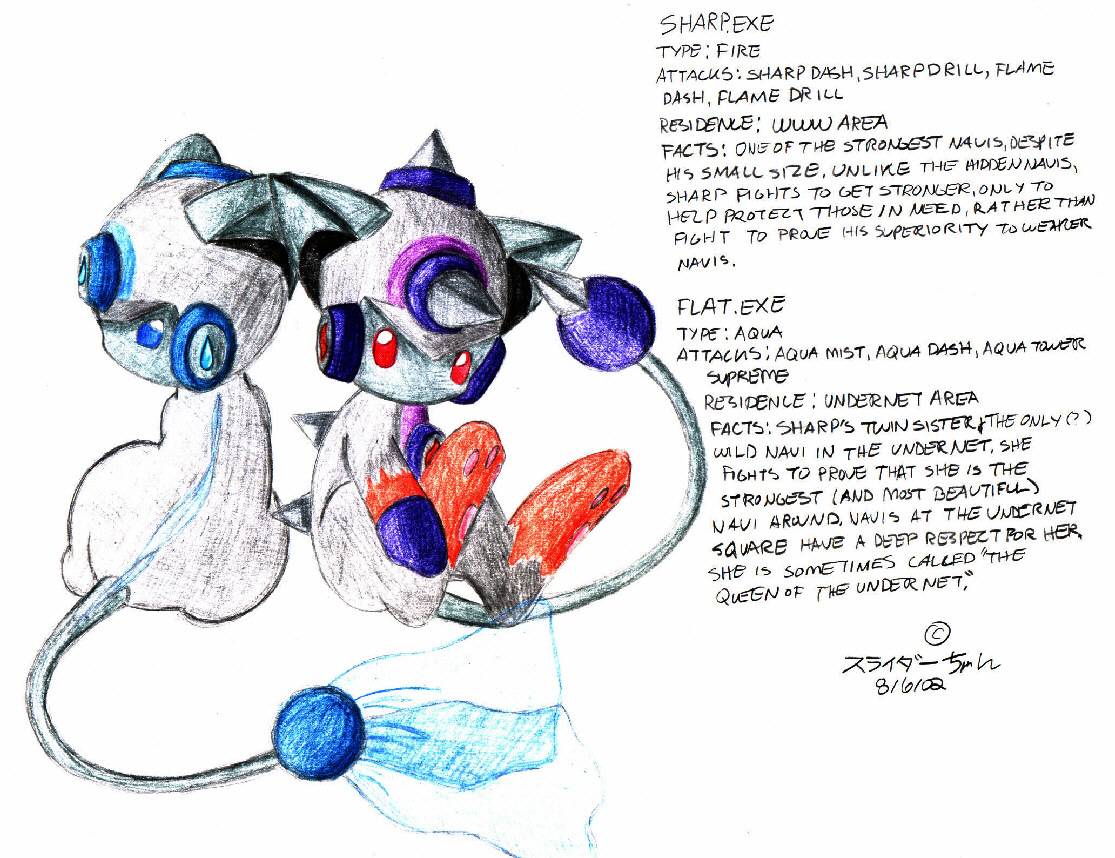 SHARP.EXE
TYPE: FIRE
ATTACKS: SHARP DASH, SHARP DRILL, FLAME
DASH, FLAME DRILL
RESIDENCE: WWW AREA
FACTS: ONE OF THE STRONGEST NAVIS, DESPITE
HIS SMALL SIZE, UNLIKE THE HIDDEN NAVIS,
SHARP FIGHTS TO GET STRONGER, ONLY TO
HELP PROTECT THOSE IN NEED, RATHER THAN
FIGHT TO PROVE HIS SUPERIORITY TO WEAKER
NAVIS.
FLAT.EXE
TYPE: AQUA
ATTACKS: AQUA MIST, AQUA DASH, AQUA TOWER
SUPREME
RESIDENCE: UNDERNET AREA
FACTS: SHARP'S TWIN SISTER & THE ONLY (?)
WILD NAVI IN THE UNDERNET. SHE
FIGHTS TO PROVE THAT SHE IS THE
STRONGEST (AND MOST BEAUTIFUL)
NAVI AROUND. NAVIS AT THE UNDERNET
SQUARE HAVE A DEEP RESPECT FOR HER.
SHE IS SOMETIMES CALLED "THE
QUEEN OF THE UNDERNET."
©
スライダーちゃん
8/6/02